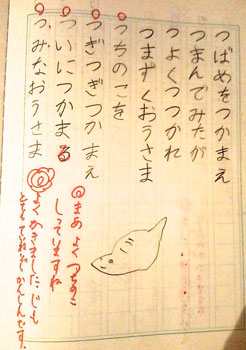 つばめをつかまえ
つまんでみたが
つよくつつかれ
つまずくおうさま
つちのこを
つぎつぎつかまえ
ついにつかまる
つみなおうさま
まめ よく つちのこ
しっていますね
よくかきました。じも
とてもていねいで かんしんです。